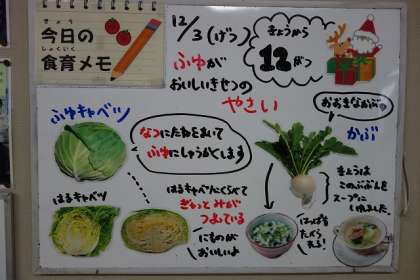 きょう
今日の
しょくいく
食育メモ
12/3(げつ)
ふゆが
おいしいきせつの
やさい
きょうから
12がつ
ふゆキャベツ
なつにたねをまいて
ふゆにしゅうかくします
はるキャベツ
はるキャベツにくらべて
ぎゅっとみが
つまっている
にものが
おいしいよ
おおきなかぶの
かぶ
きょうは
このぶぶんを
スープに
いれました。
はっぱも
たべら
れる!